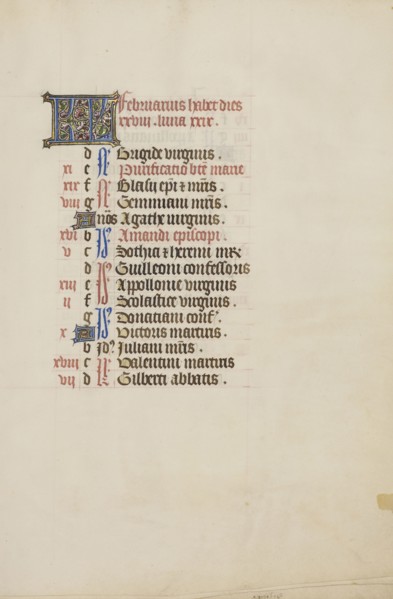 KL Februarius habet dies
xxviii . luna xxix .
d N Brigide virginis .
xi e N Purificatio bte marie
xix f N Blasii epi & mris .
viii g N Geminiani mris .
A nos Agathe virginis .
xvi b Is Amandi episcopi .
v c Is
d Is Guilleoni confessoris
xiii e Is Appollonie virginis
ii f Is Scolastice virginis .
g Is Donatiani conf .
x A Is Victoris martiris .
b Id9 Juliani mris .
xviii c Valentini martiris
vii d Gilberti abbatis .